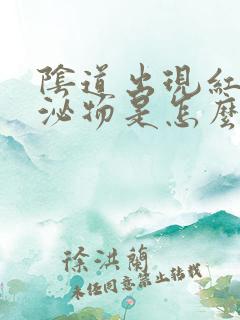 陰道出現紅
泌物是怎麼
徐洪蘭
未经同意禁止转载